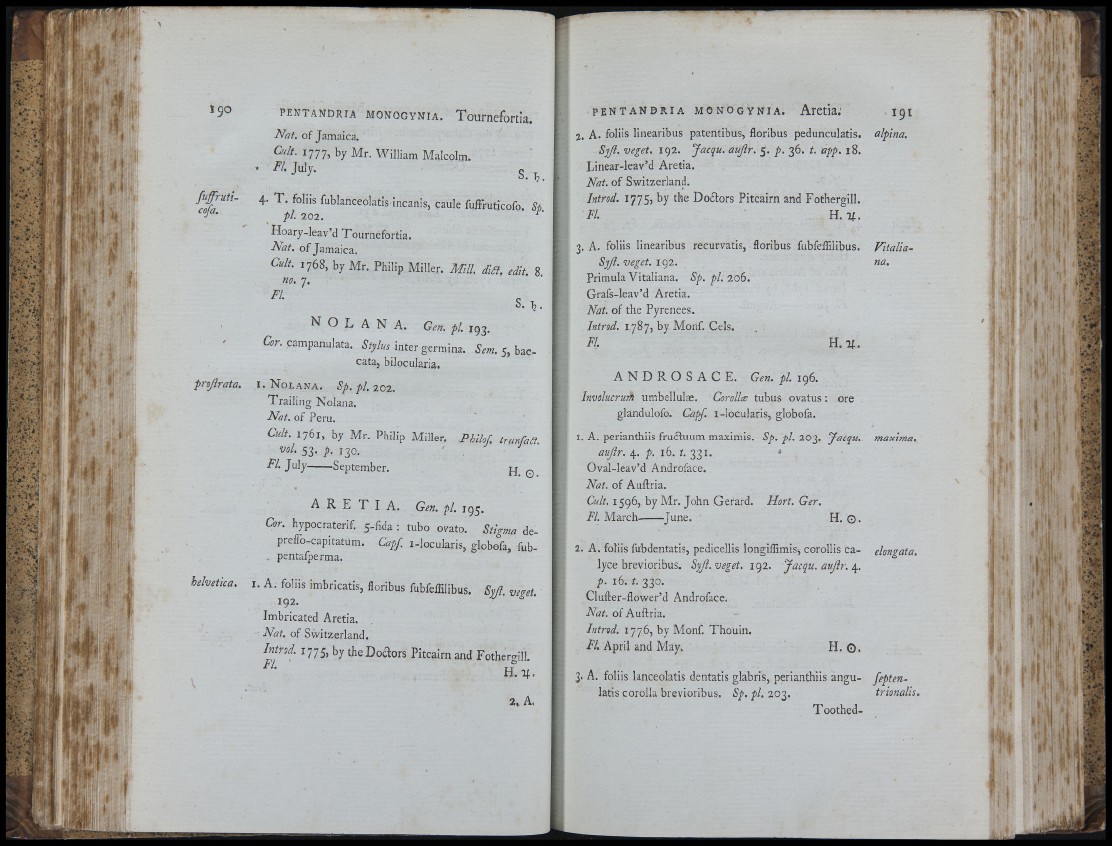 190 PENTANDRIA MONOGYNIA. Tournefortia.
Nat. of Jamaica.
Cult. 1777, by Mr. William Malcolm.
Fl. July. S. ♄.
ſuffruti-
coſa.
4. T. foliis ſublanceolatis incanis, caule ſuffruticoſo. Sp.
pl. 202.
Hoary-leav'd Tournefortia.
Nat. of Jamaica.
Cult. 1768, by Mr. Philip Miller. Mill. dict. edit. 8.
no. 7.
Fl. S. ♄.
NOLANA. Gen. pl. 193.
Cor. campanulata. Stylus inter germina. Sem. 5, bac-
cata, bilocularia.
proſtrata. 1. NOLANA. Sp. pl. 202.
Trailing Nolana.
Nat. of Peru.
Cult. 1761, by Mr. Philip Miller. Philoſ. tranſact.
vol. 53. p. 130.
Fl. July——September. H. ☉.
ARETIA. Gen. pl. 195.
Cor. hypocraterif. 5-fida : tubo ovato. Stigma de-
preſſo-capitatum. Capſ. 1-locularis, globoſa, ſub-
pentaſperma.
helvetica. 1. A. foliis imbricatis, floribus ſubſeſſilibus. Syſt. veget.
192.
Imbricated Aretia.
Nat. of Switzerland.
Introd. 1775, by the Doctors Pitcairn and Fothergill.
Fl. H. ♃.
2. A.
PENTANDRIA MONOGYNIA. Aretia. 191
2. A. foliis linearibus patentibus, floribus pedunculatis. alpina.
Syſt. veget. 192. Jacqu. auſtr. 5. p. 36. t. app. 18.
Linear-leav'd Aretia.
Nat. of Switzerland.
Introd. 1775, by the Doctors Pitcairn and Fothergill.
Fl. H. ♃.
3. A. foliis linearibus recurvatis, floribus ſubſeſſilibus. Vitalia-
Syſt. veget. 192. na.
Primula Vitaliana. Sp. pl. 206.
Graſs-leav'd Aretia.
Nat. of the Pyrenees.
Introd. 1787, by Monſ. Cels.
Fl. H. ♃.
ANDROSACE. Gen. pl. 196.
Involucrum umbellulæ. Corollæ tubus ovatus : ore
glanduloſo. Capſ. 1-locularis, globoſa.
1. A. perianthiis fructuum maximis. Sp. pl. 203. Jacqu. maxima.
auſtr. 4. p. 16. t. 331.
Oval-leav'd Androſace.
Nat. of Auſtria.
Cult. 1596, by Mr. John Gerard. Hort. Ger.
Fl. March——June. H. ☉.
2. A. foliis ſubdentatis, pedicellis longiſſimis, corollis ca- elongata.
lyce brevioribus. Syſt. veget. 192. Jacqu. auſtr. 4.
p. 16. t. 330.
Cluſter-flower'd Androſace.
Nat. of Auſtria.
Introd. 1776, by Monſ. Thouin.
Fl. April and May. H. ☉.
3. A. foliis lanceolatis dentatis glabris, perianthiis angu- ſepten-
latis corolla brevioribus. Sp. pl. 203. trionalis.
Toothed-